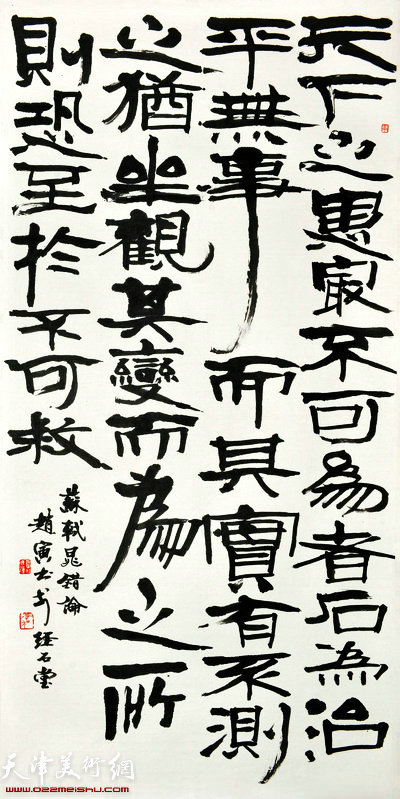 天下之患最不可為者名為治
平無事而其實有不測
之猶坐觀其變而為之所
則恐至於不可救
蘇軾晁錯論
趙寅士書經石堂
天津美術網
www.022meishu.com